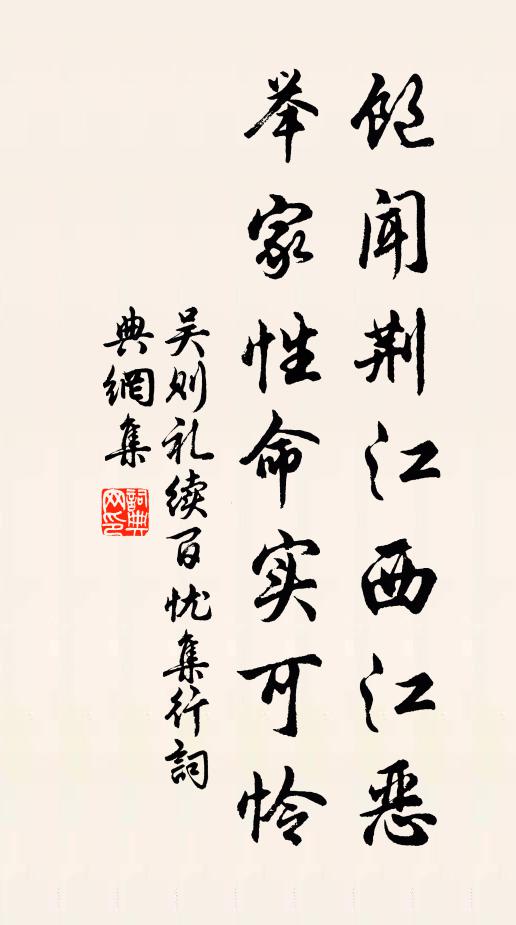 饱闻荆江西江恶
举家性命实可怜
吴则礼续百忧集行詞
典網集
詞典
网印